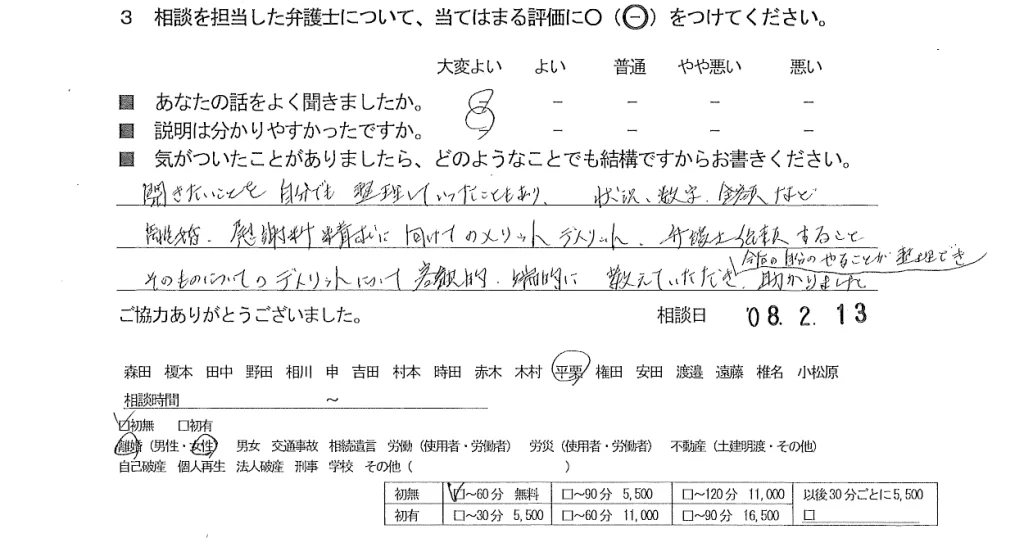 3 相談を担当した弁護士について、当てはまる評価に○(⊖)をつけてください。
大変よい よい 普通 やや悪い 悪い
■ あなたの話をよく聞きましたか。 − − − − −
■ 説明は分かりやすかったですか。 − − − − −
■ 気がついたことがありましたら、どのようなことでも結構ですからお書きください。
聞きたいことを自分でも整理していったこともあり、状況、数字、金額など
離婚、慰謝料請求に向けてのメリットデメリット、弁護士依頼すること
そのものについてのデメリットについて客観的、端的に教えていただき、今后の自分のやることが整理でき助かりました
ご協力ありがとうございました。 相談日 '08.2.13
森田 榎本 田中 野田 相川 申 吉田 村本 時田 赤木 木村 平栗 権田 安田 渡邉 遠藤 椎名 小松原
相談時間 ～
☑初無 □初有
離婚(男性・女性) 男女 交通事故 相続遺言 労働(使用者・労働者) 労災(使用者・労働者) 不動産(土建明渡・その他)
自己破産 個人再生 法人破産 刑事 学校 その他( )
初無 ☑～60分 無料 □～90分 5,500 □～120分 11,000 以後30分ごとに5,500
初有 □～30分 5,500 □～60分 11,000 □～90分 16,500 □